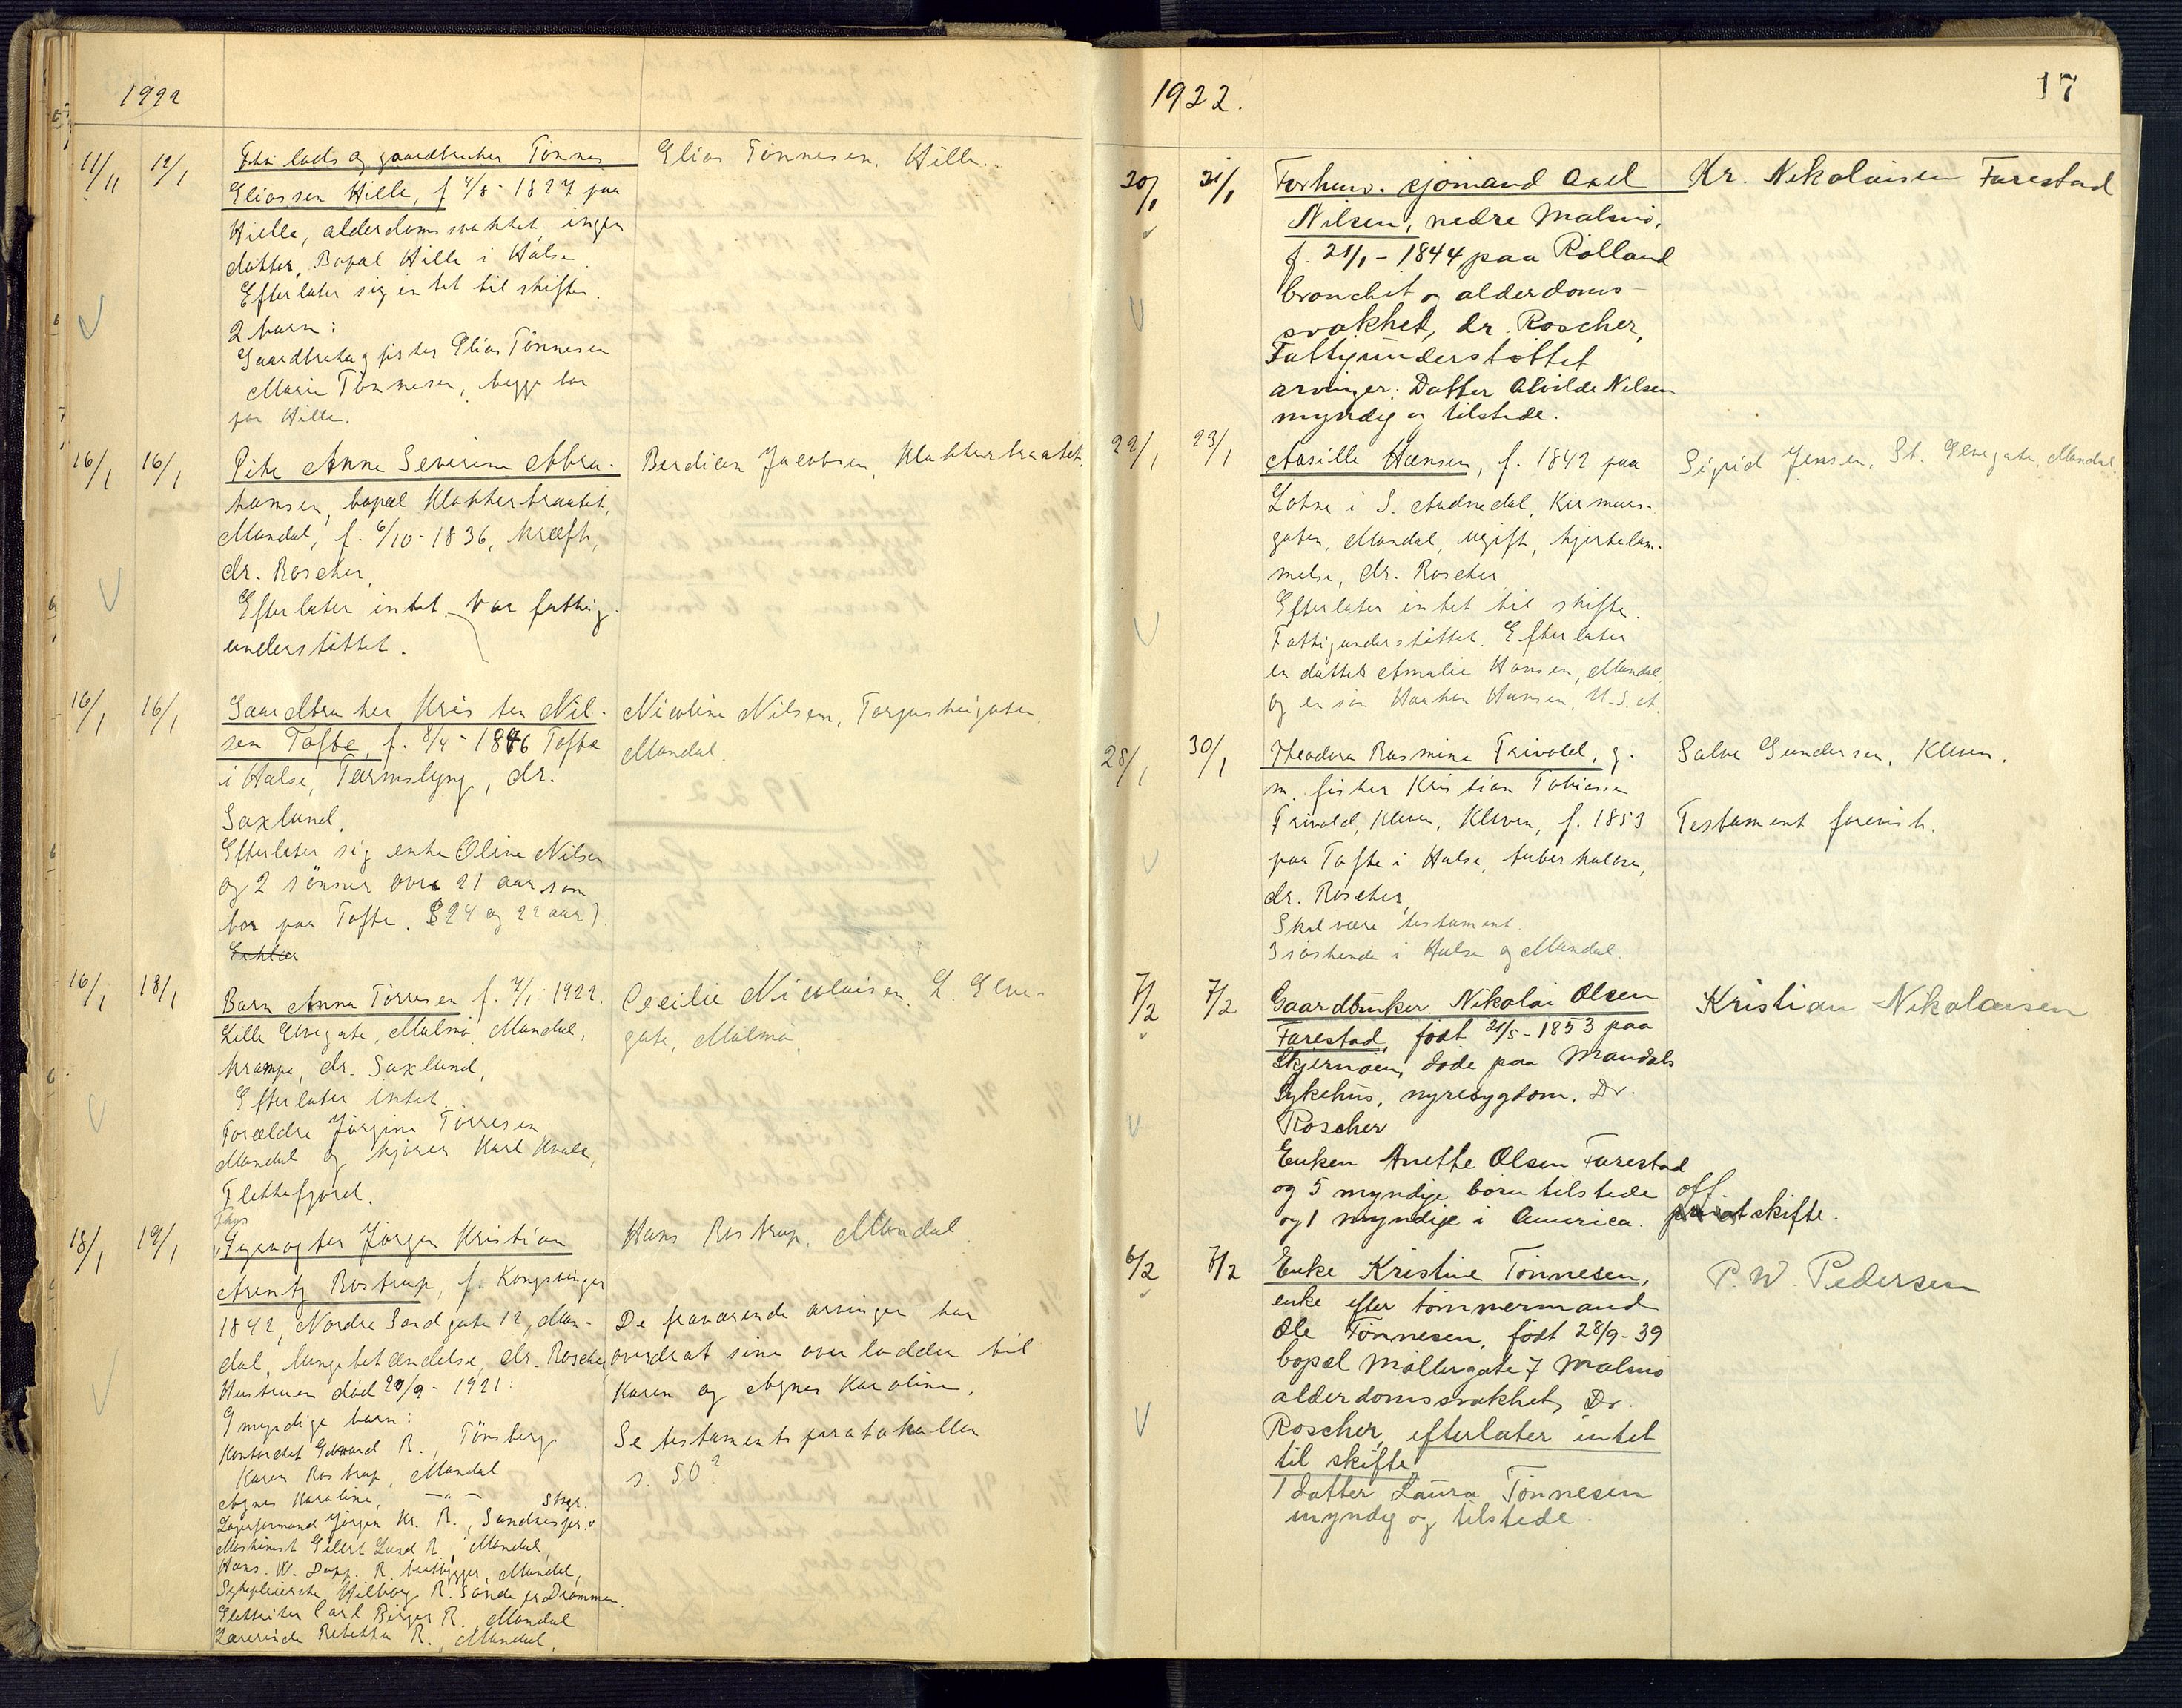 1922
11/11 12/1 Fhv. lods og gaardbruker Tönnes Elias Tönnesen, Hille.
Eliassen Hille, f 4/8 - 1827 paa
Hille, alderdomssvakhet, ingen
doktor, Bopæl Hille i Halse
Efterlater sig intet til skifte.
2 barn:
Gaardbruker og fisker Elias Tönnesen
Marie Tönnesen, begge bor
paa Hille.
16/1 16/1 Pike Anne Severine Abra- Berdien Jacobsen, Klokkerbraatet.
hamsen, bopæl Klokkerbraatet,
Mandal, f. 6/10 - 1836, kræft,
dr. Roscher,
Efterlater intet. Var fattig-
understöttet.
16/1 16/1 Gaardbruker Kristen Nil- Nicoline Nilsen, Torjusheigaten,
sen Tofte, f. 8/4 - 1846 Tofte Mandal.
i Halse, Tarmslyng, dr.
Saxlund.
Efterlater sig enke Oline Nilsen
og 2 sönner over 21 aar som
bor paa Tofte. (24 og 22 aar).
16/1 18/1 Barn Anna Törresen f. 4/1 1922. Cecilie Nicolaisen, L. Elve-
Lille Elvegate, Malmö, Mandal, gate, Malmö,
krampe, dr. Saxlund,
Efterlater intet.
Forældre Jörgine Törresen
Mandal og kjörer Karl Kvale,
Flekkefjord.
Fhv.
18/1 19/1 Fyrvogter Jörgen Kristian Hans Rostrup, Mandal
Arentz Rostrup, f. Kongsvinger
1842, Nordre Sandgate 12, Man- De fraværende arvinger har
dal, lungebetændelse, dr. Roscher, overdrat sine arvelodder til
Hustruen död 20/9 - 1921: Karen og Agnes Karoline.
9 myndige barn:
Kontorchef Edvard R., Tönsberg Se testamentsprotokollen
Karen Rostrup, Mandal s. 50?
Agnes Karoline, —"— Skgr.
Lagerformand Jörgen Kr. R., Sandnesgr.
Maskinist Eilert Lund R., Mandal,
Hans W. Dopp. R. baatbygger, Mandal,
Sykepleierske Hilborg R. Sande pr Drammen.
Carl Birger R., Mandal
Lærerinde Rebekka R., Mandal,
1922. 17
20/1 21/1 Forhenv. sjömand Axel Kr. Nikolaisen Farestad
Nilsen, nedre Malmö,
f. 21/1 - 1844 paa Rölland
bronchit og alderdoms-
svakhet, dr. Roscher,
Fattigunderstöttet
arvinger: Datter Alvilde Nilsen
myndig og tilstede.
22/1 23/1 Aasille Hansen, f. 1842 paa Sigrid Jensen, St. Elvegate, Mandal,
Lohne i S. Audnedal, Kirmes-
gaten, Mandal, ugift, hjertelam-
melse, dr. Roscher
Efterlater intet til skifte.
Fattigunderstöttet. Efterlater
en datter Amalie Hansen, Mandal,
og en sön Haakon Hansen, U.S.A.
28/1 30/1 Theodora Rasmine Frivold, g. Salve Gundersen, Kleven.
m. fisker Kristian Tobiassen
Frivold, Kleven, Kleven, f. 1853 Testament forevist.
paa Tofte i Halse, tuberkulose,
dr. Roscher,
Skal være testament.
3 söskende i Halse og Mandal.
7/2 7/2 Gaardbruker Nikolai Olsen Kristian Nikolaisen
Farestad, födt 21/5 - 1853 paa
Skjernöen, döde paa Mandals
Sykehus, nyresygdom. Dr.
Roscher
Enken Anette Olsen Farestad
og 5 myndige barn tilstede off.
og 1 myndige i America. privat skifte.
6/2 7/2 Enke Kristine Tönnesen, P. W. Pedersen
enke efter tömmermand
Ole Tönnesen, födt 28/9 - 39
bopæl Möllergate 7 Malmö
alderdomssvakhet, Dr.
Roscher, efterlater intet
til skifte
1 datter Laura Tönnesen
myndig og tilstede.